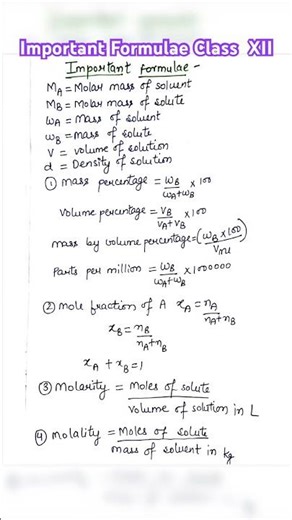 Important Formulae Class XII
Important formulae -
M_A = Molar mass of solvent
M_B = Molar mass of solute
ω_A = mass of solvent
ω_B = mass of solute
V = volume of solution
d = Density of solution
① mass percentage = ω_B / (ω_A + ω_B) × 100
Volume percentage = V_B / (V_A + V_B) × 100
mass by volume percentage = (ω_B × 100 / V_ml)
Parts per million = ω_B / (ω_A + ω_B) × 1000000
② mole fraction of A x_A = n_A / (n_A + n_B)
x_B = n_B / (n_A + n_B)
x_A + x_B = 1
③ Molarity = Moles of solute / Volume of solution in L
④ Molality = Moles of solute / mass of solvent in kg